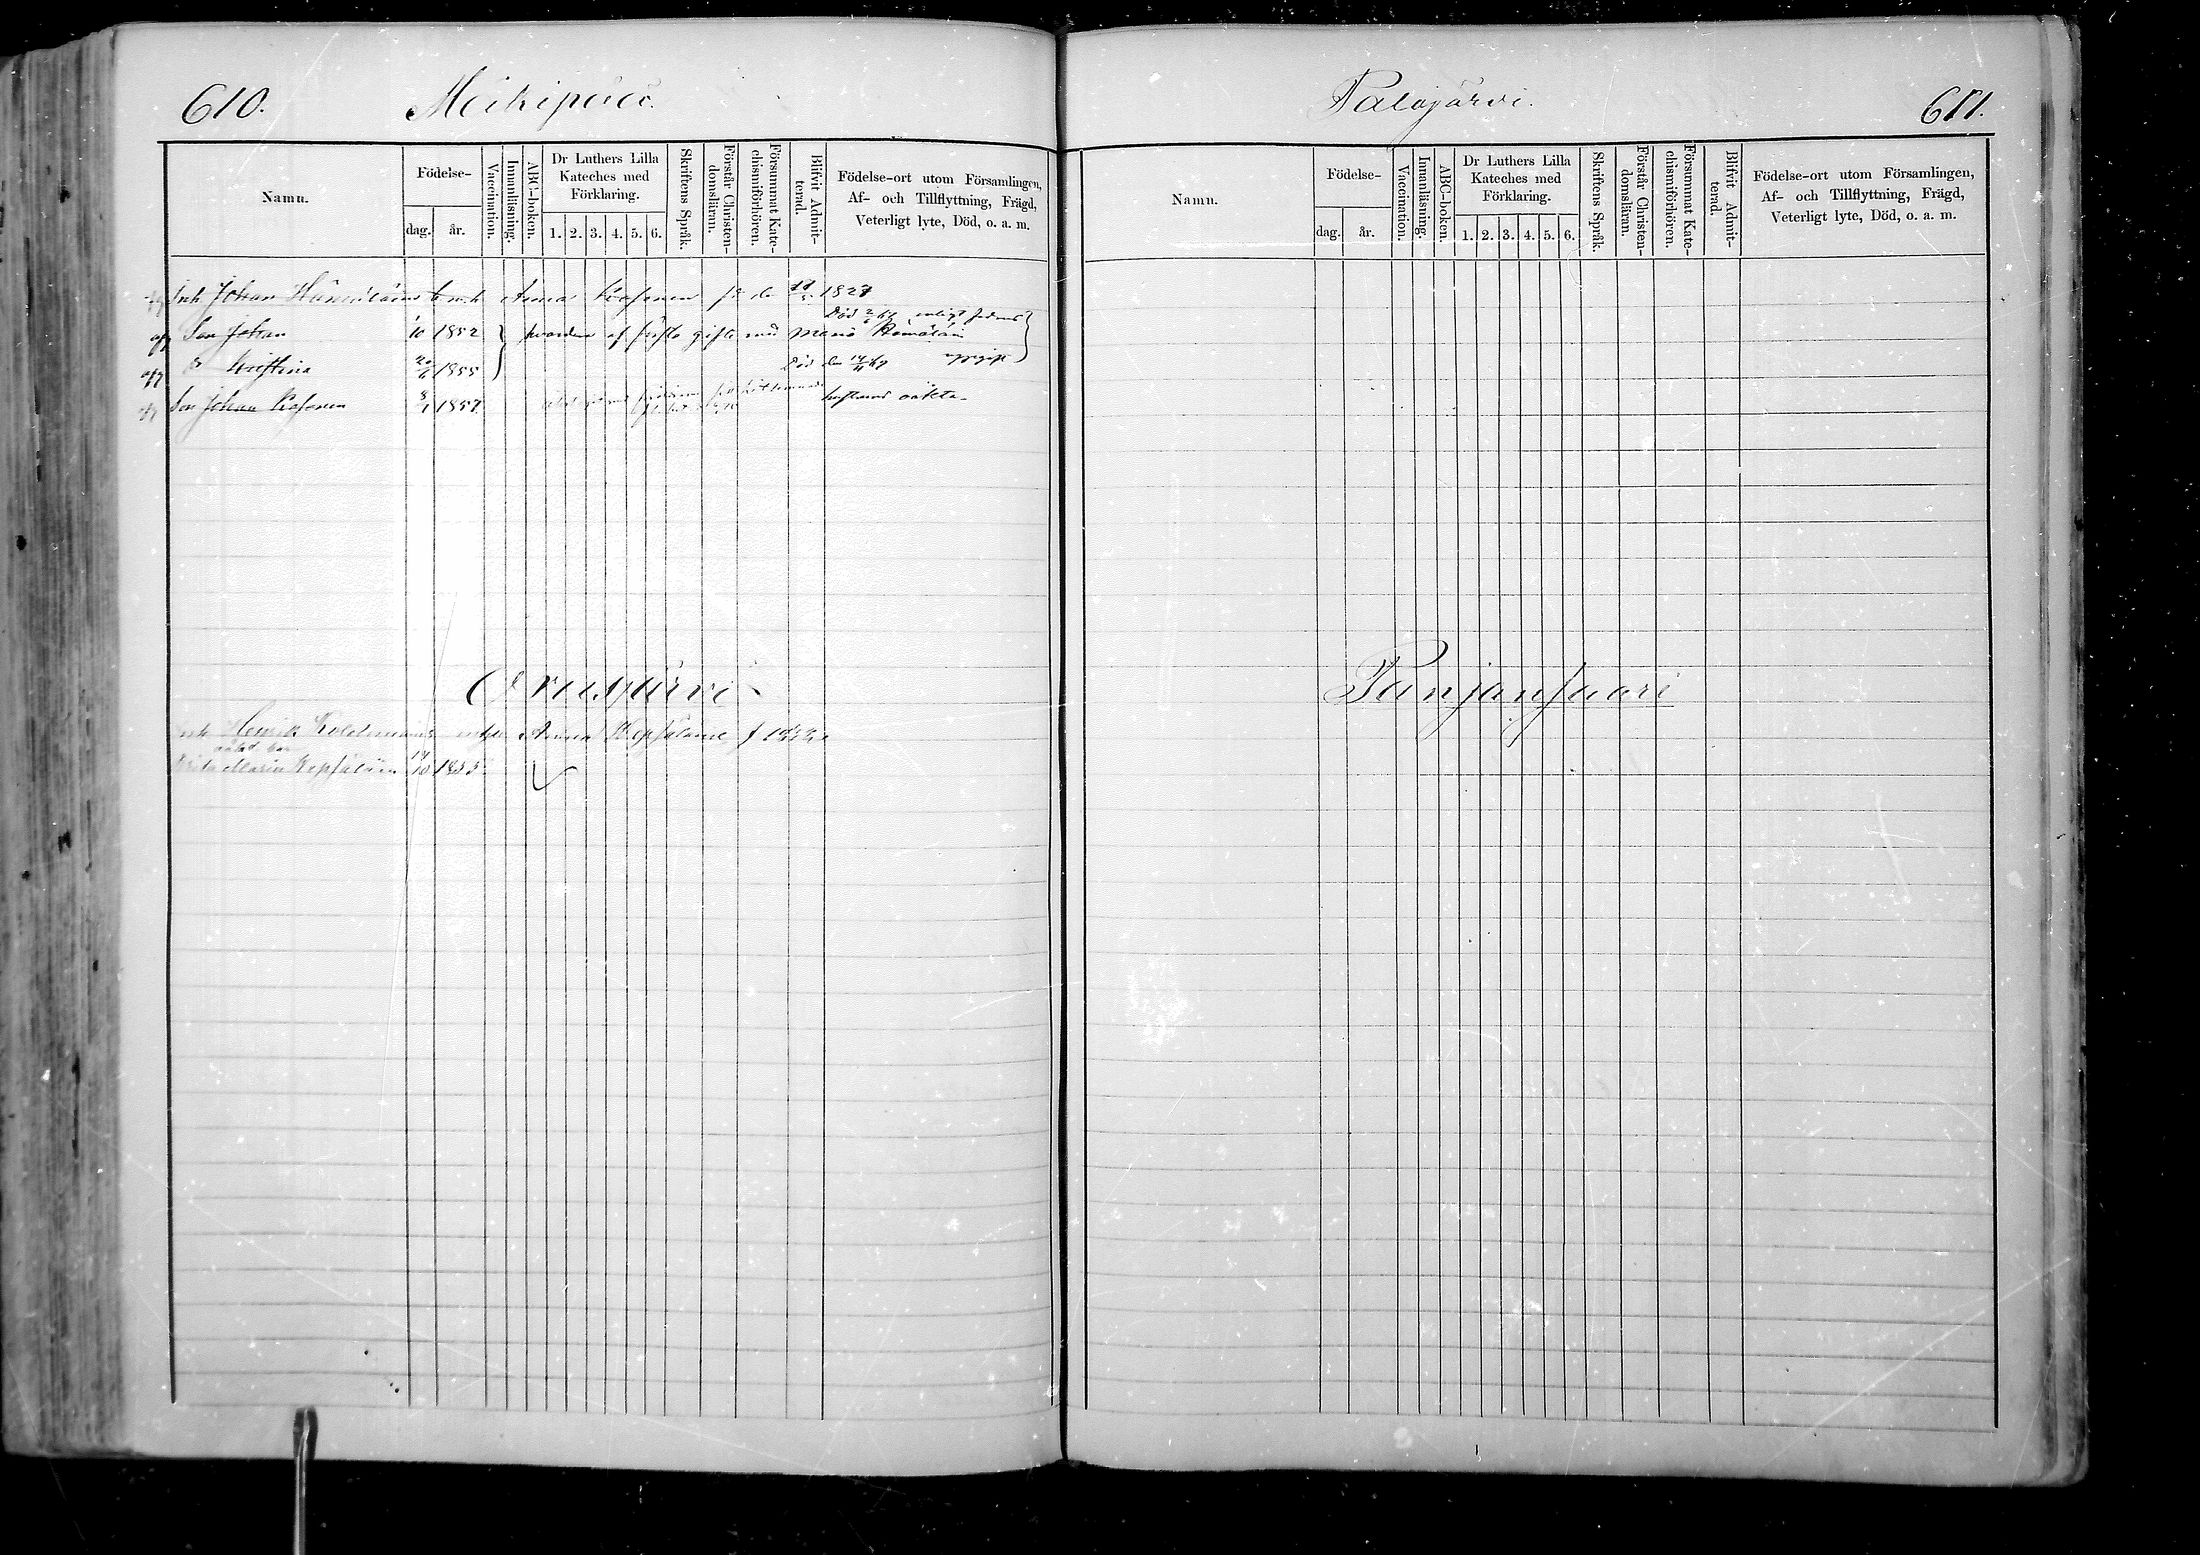 610.
Meikipää.
Namn.
Födelse-
dag.
år.
Vaccination.
Innanläsning.
ABC-boken.
Dr Luthers Lilla
Kateches med
Förklaring.
1. 2. 3. 4. 5. 6.
Skriftens Språk.
Förstår Christen-
domsläran.
Försummat Kate-
chismiförhören.
Blifvit Admit-
terad.
Födelse-ort utom Församlingen,
Af- och Tillflyttning, Frägd,
Veterligt lyte, Död, o. a. m.
Johan Hämäläinens Anna Kosonen 1827
Son Johan 10 1852 af gifte med Maria Hämäläin
Död enligt
Kristina 20/6 1855 Död den
Son Johan Kosonen 1857 oäkta
Orusjärvi
Henrik Anna Repsalaine
Maria Repsaläin 14/10 1855
Palojärvi.
611.
Namn.
Födelse-
dag.
år.
Vaccination.
Innanläsning.
ABC-boken.
Dr Luthers Lilla
Kateches med
Förklaring.
1. 2. 3. 4. 5. 6.
Skriftens Språk.
Förstår Christen-
domsläran.
Försummat Kate-
chismiförhören.
Blifvit Admit-
terad.
Födelse-ort utom Församlingen,
Af- och Tillflyttning, Frägd,
Veterligt lyte, Död, o. a. m.
Panjansaari